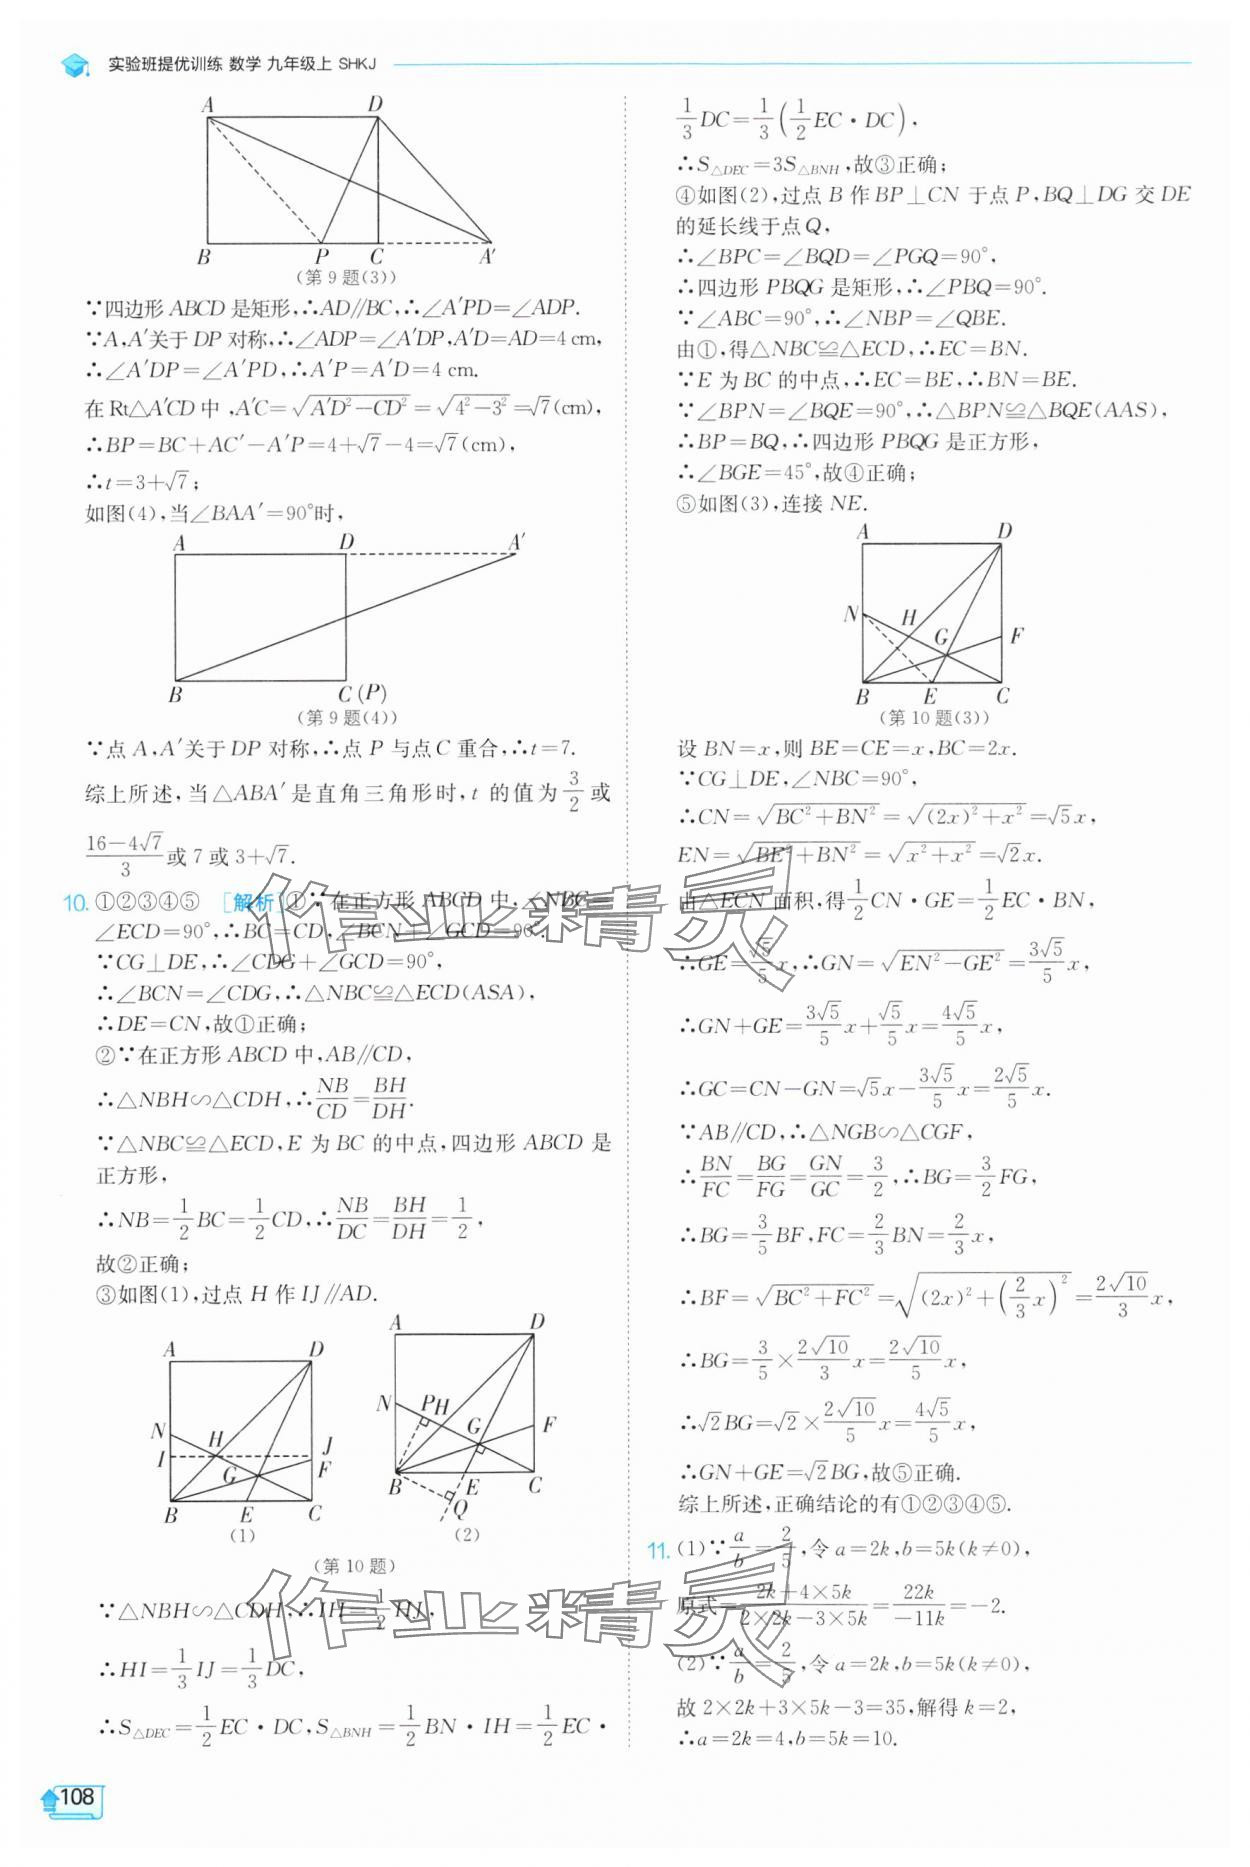 实验班提优训练 数学 九年级上 SHKJ
A D
B P C A′
(第9题(3))
∵四边形ABCD是矩形,∴AD//BC,∴∠A′PD=∠ADP.
∵A,A′关于DP对称,∴∠ADP=∠A′DP,A′D=AD=4 cm,
∴∠A′DP=∠A′PD,∴A′P=A′D=4 cm.
在Rt△A′CD中,A′C=√(A′D²−CD²)=√(4²−3²)=√7(cm),
∴BP=BC+AC′−A′P=4+√7−4=√7(cm),
∴t=3+√7;
如图(4),当∠BAA′=90°时,
A D A′
B C(P)
(第9题(4))
∵点A,A′关于DP对称,∴点P与点C重合,∴t=7.
综上所述,当△ABA′是直角三角形时,t的值为3/2或
(16−4√7)/3或7或3+√7.
10. ①②③④⑤ [解析]①∵在正方形ABCD中,∠NBC=
∠ECD=90°,∴BC=CD,∠BCN+∠GCD=90°.
∵CG⊥DE,∴∠CDG+∠GCD=90°,
∴∠BCN=∠CDG,∴△NBC≌△ECD(ASA),
∴DE=CN,故①正确;
②∵在正方形ABCD中,AB//CD,
∴△NBH∽△CDH,∴NB/CD=BH/DH.
∵△NBC≌△ECD,E为BC的中点,四边形ABCD是
正方形,
∴NB=1/2BC=1/2CD,∴NB/DC=BH/DH=1/2,
故②正确;
③如图(1),过点H作IJ//AD.
A D
N H J
I G F
B E C
(1)
A D
N P H
G F
B E C
Q
(2)
(第10题)
∵△NBH∽△CDH,∴IH=1/2HJ,
∴HI=1/3IJ=1/3DC,
∴S△DEC=1/2EC·DC,S△BNH=1/2BN·IH=1/2EC·
1/3DC=1/3(1/2EC·DC),
∴S△DEC=3S△BNH,故③正确;
④如图(2),过点B作BP⊥CN于点P,BQ⊥DG交DE
的延长线于点Q,
∴∠BPC=∠BQD=∠PGQ=90°,
∴四边形PBQG是矩形,∴∠PBQ=90°.
∵∠ABC=90°,∴∠NBP=∠QBE.
由①,得△NBC≌△ECD,∴EC=BN.
∵E为BC的中点,∴EC=BE,∴BN=BE.
∵∠BPN=∠BQE=90°,∴△BPN≌△BQE(AAS),
∴BP=BQ,∴四边形PBQG是正方形,
∴∠BGE=45°,故④正确;
⑤如图(3),连接NE.
A D
N H G F
B E C
(第10题(3))
设BN=x,则BE=CE=x,BC=2x.
∵CG⊥DE,∠NBC=90°,
∴CN=√(BC²+BN²)=√((2x)²+x²)=√5x,
EN=√(BE²+BN²)=√(x²+x²)=√2x.
由△ECN面积,得1/2CN·GE=1/2EC·BN,
∴GE=√5/5x,∴GN=√(EN²−GE²)=3√5/5x,
∴GN+GE=3√5/5x+√5/5x=4√5/5x,
∴GC=CN−GN=√5x−3√5/5x=2√5/5x.
∵AB//CD,∴△NGB∽△CGF,
∴BN/FC=BG/FG=GN/GC=3/2,∴BG=3/2FG,
∴BG=3/5BF,FC=2/3BN=2/3x,
∴BF=√(BC²+FC²)=√((2x)²+(2/3x)²)=2√10/3x,
∴BG=3/5×2√10/3x=2√10/5x,
∴√2BG=√2×2√10/5x=4√5/5x,
∴GN+GE=√2BG,故⑤正确.
综上所述,正确结论的有①②③④⑤.
11. (1)∵a/b=2/5,令a=2k,b=5k(k≠0),
原式=(2k+4×5k)/(2×2k−3×5k)=22k/−11k=−2.
(2)∵a/b=2/5,令a=2k,b=5k(k≠0),
故2×2k+3×5k−3=35,解得k=2,
∴a=2k=4,b=5k=10.
作业精灵
作业精灵
108